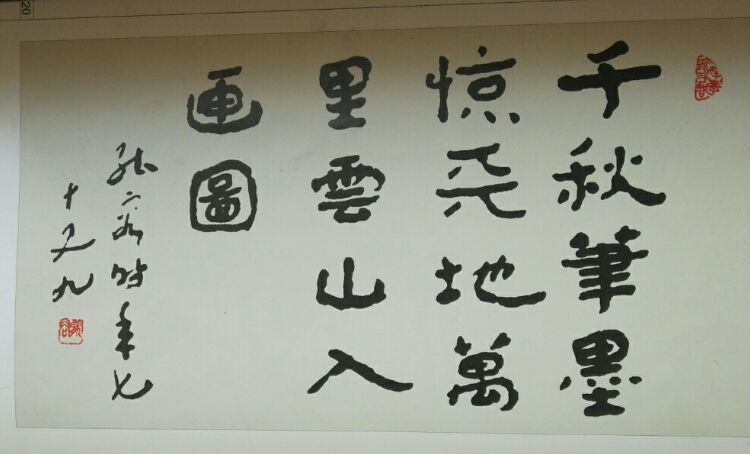 千秋筆墨
惊天地萬
里雲山入
画圖
时年七
十又九
20